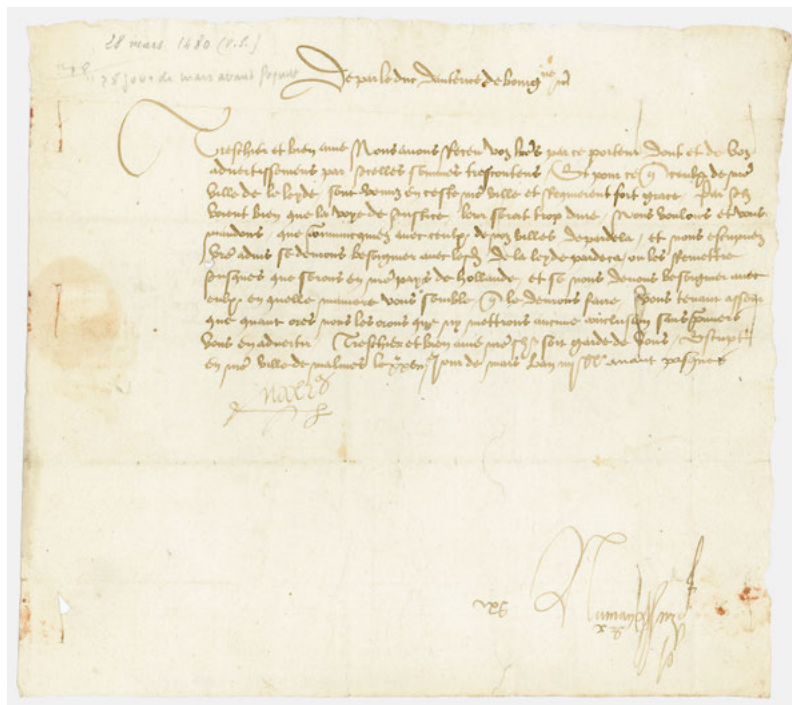 28 mars 1480 (v.s.)
28 jour de mars avant pasques
De par le duc daustrice de bourgne
Treschier et bien ame Nous avons Receu voz lres par ce porteur Dont et de voz
advertissemens par icelles sommes trescontens Et pour ce q ceulx de nre
ville de leyde sont venuz en ceste nre ville et Requerent fort grace Par ilz
voient bien que la voye de Justice leur seroit trop dure Nous voulons et vous
mandons que communicquiez avec ceulx de noz villes depardela et nous escripvez
vre advis se devons besoigner avec lesd de la leyde pardeca ou les Remettre
Jusques que serons en nre pays de hollande et se nous devons besoigner avec
eulx en quelle maniere vous semble q le devons faire Vous tenant asseur
que quant ores nous les orons que ny mettrons aucune conclusion sans premiers
vous en advertir Treschier et bien ame nre sr soit garde de vous Escript
en nre ville de malines le jour de mars lan avant pasques